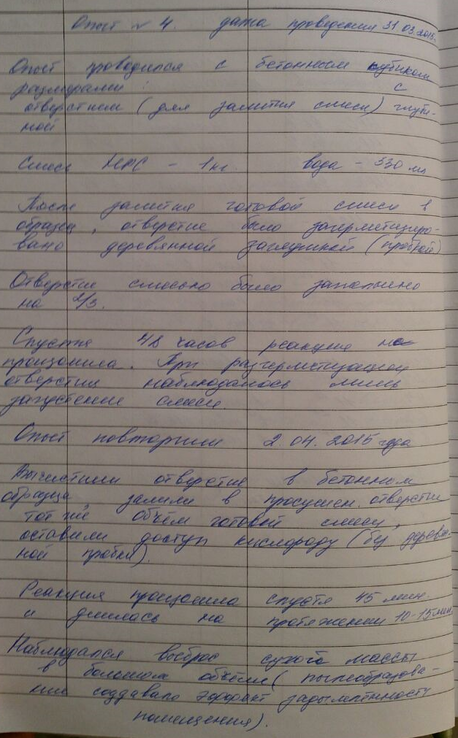 Опыт № 4 дата проведения 31.03.2015
Опыт проводился с бетонным кубиком
размерами : с
отверстием (для залития смеси) глуби-
ной
Смесь НРС - 1 кг. вода - 330 мл
После залития готовой смеси в
образец, отверстие было загерметизиро-
вано деревянной заглушкой (пробкой)
Отверстие смесью было заполнено
на 2/3.
Спустя 48 часов реакция не
произошла. При разгерметизации
отверстия наблюдалось лишь
загустение смеси.
Опыт повторили 2.04.2015 года
Вычистили отверстие в бетонном
образце, залили в просушен. отверстие
тот же объём готовой смеси,
оставили доступ кислороду (без деревян-
ной пробки).
Реакция произошла спустя 45 мин.
и длилась на протяжении 10-15 мин
Наблюдался выброс сухой массы
в большом объёме (пылеобразова-
ние создавало эффект задымлённости
помещения).